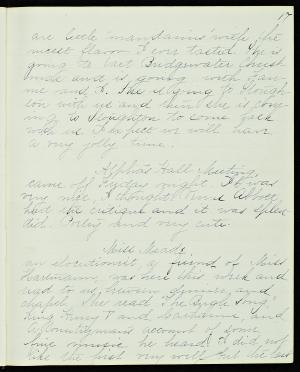 17
are little "mandarins" with the
nicest flavor I ever tasted. She is
going to East Bridgewater Christ-
mas and is going with Fan-
nie and I. She is going to Stough-
ton with us and then she is com-
ing to Stoughton to come back
with us. I expect we will have
a very jolly time.
Alpha's Hall Meeting
came off Friday night. It was
very nice, I thought. Annie Abbott
had the critique and it was splen-
did. Poetry and very cute.
Miss Meade
an elocutionist, a friend of Miss
was here this week and
read to us, between dinner, and
chapel. She read "The Bugle Song,"
King Henry V and Catharine, and
a Countryman's account of some
fine music he heard. I did not
like the first very well but the last